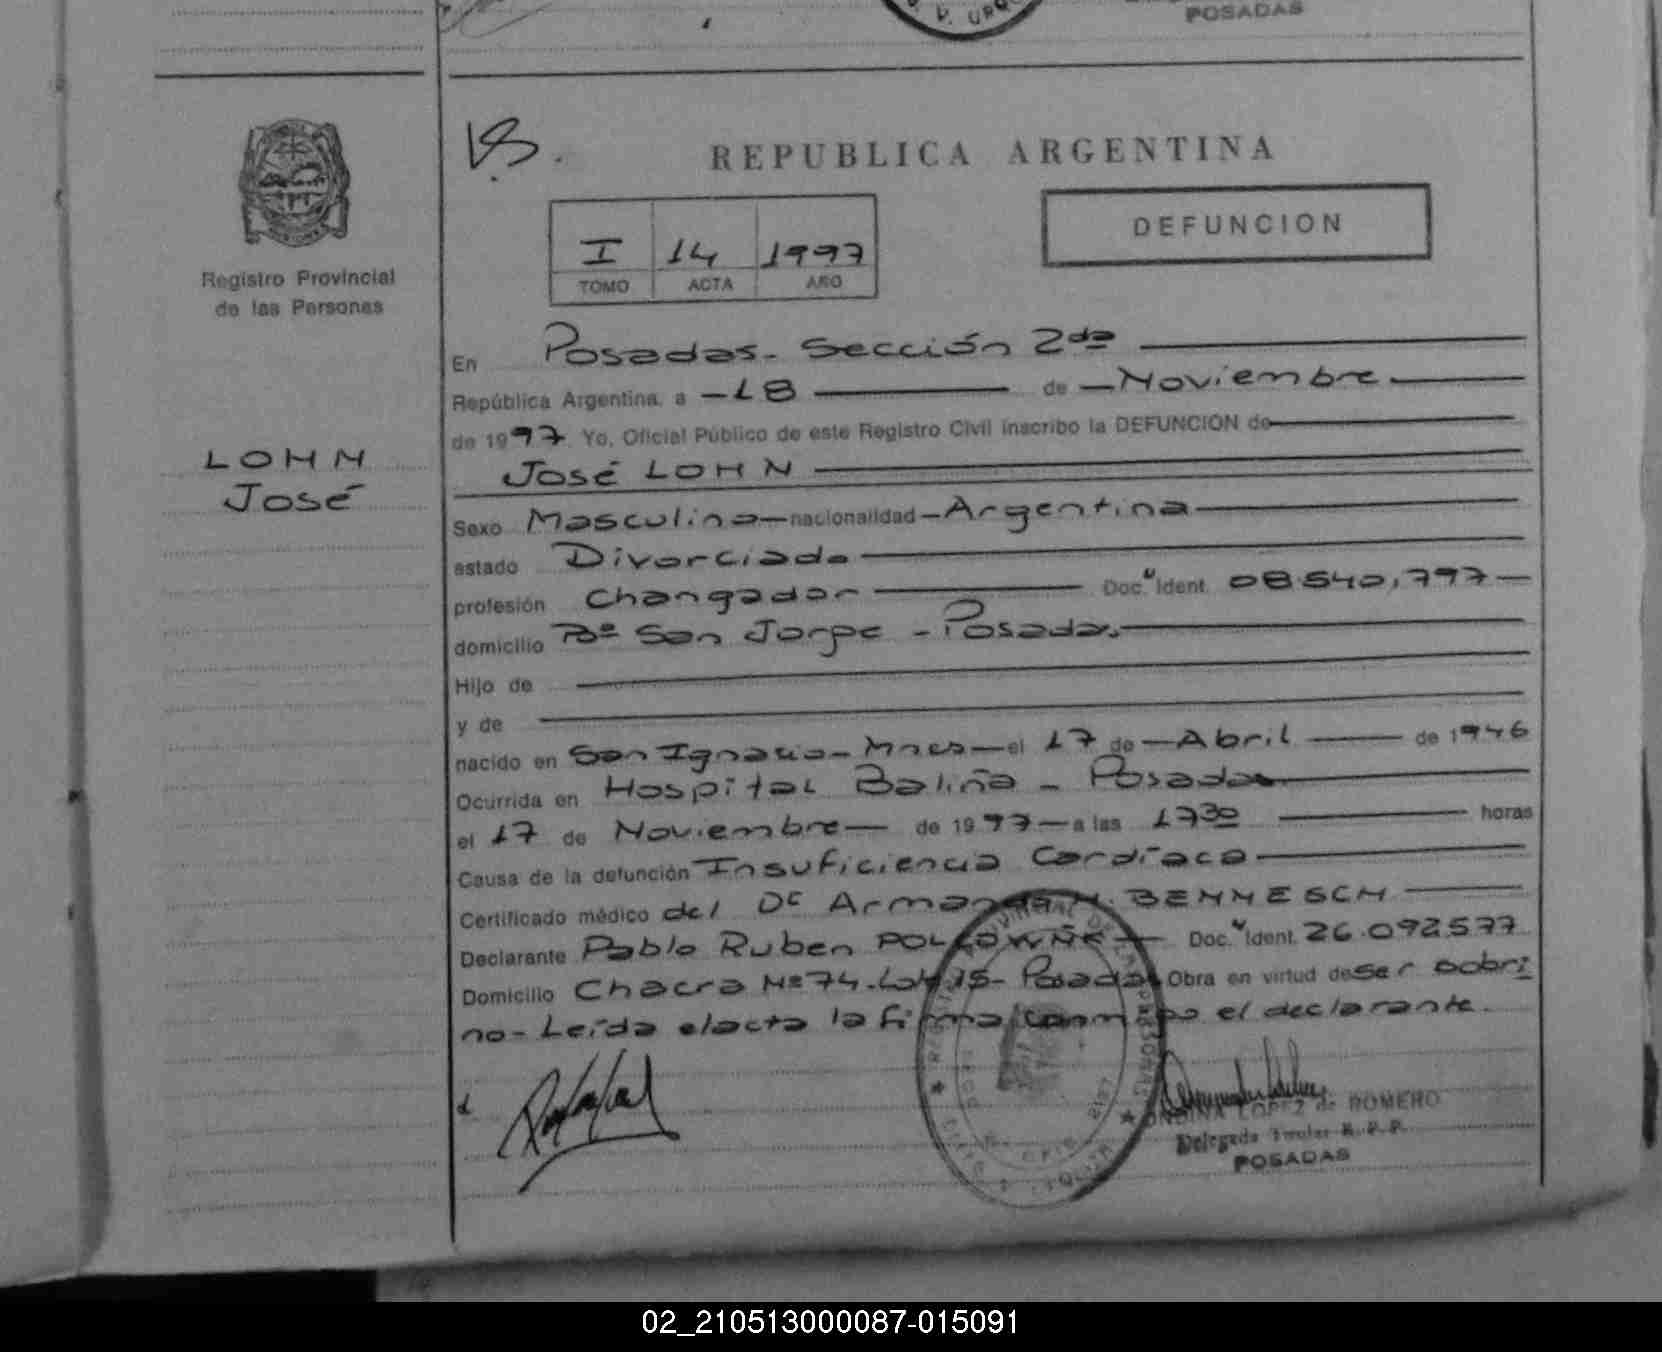 V. URQ
POSADAS
REPUBLICA ARGENTINA
I 14 1997
TOMO ACTA AÑO
DEFUNCION
Registro Provincial
de las Personas
LOHN
José
En Posadas - Sección 2da
República Argentina, a - 18 de - Noviembre
de 1997. Yo, Oficial Público de este Registro Civil inscribo la DEFUNCION de
José LOHN
Sexo Masculino - nacionalidad - Argentina
estado Divorciado
profesión Changador Doc. Ident. 08.540.797
domicilio Bº San Jorge - Posadas
Hijo de
y de
nacido en San Ignacio - Mnes - el 17 de - Abril de 1946
Ocurrida en Hospital Baliña - Posadas
el 17 de Noviembre - de 1997 - a las 1730 horas
Causa de la defunción Insuficiencia Cardíaca
Certificado médico del Dr Armando H. BENMESCH
Declarante Pablo Ruben Doc. Ident. 26.092577
Domicilio Chacra Nº 74 - Posadas Obra en virtud de ser sobri
no - Leída el acta la firma conmigo el declarante.
ONDINA LOPEZ de ROMERO
Delegada Titular R. P. P.
POSADAS
02_210513000087-015091